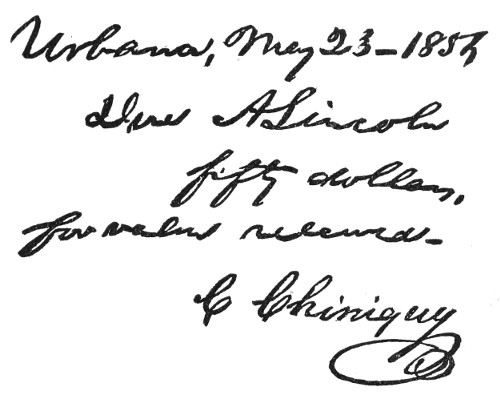 Urbana, May 23-1856
Due A Lincoln
fifty dollars,
for value received-
C Chiniquy